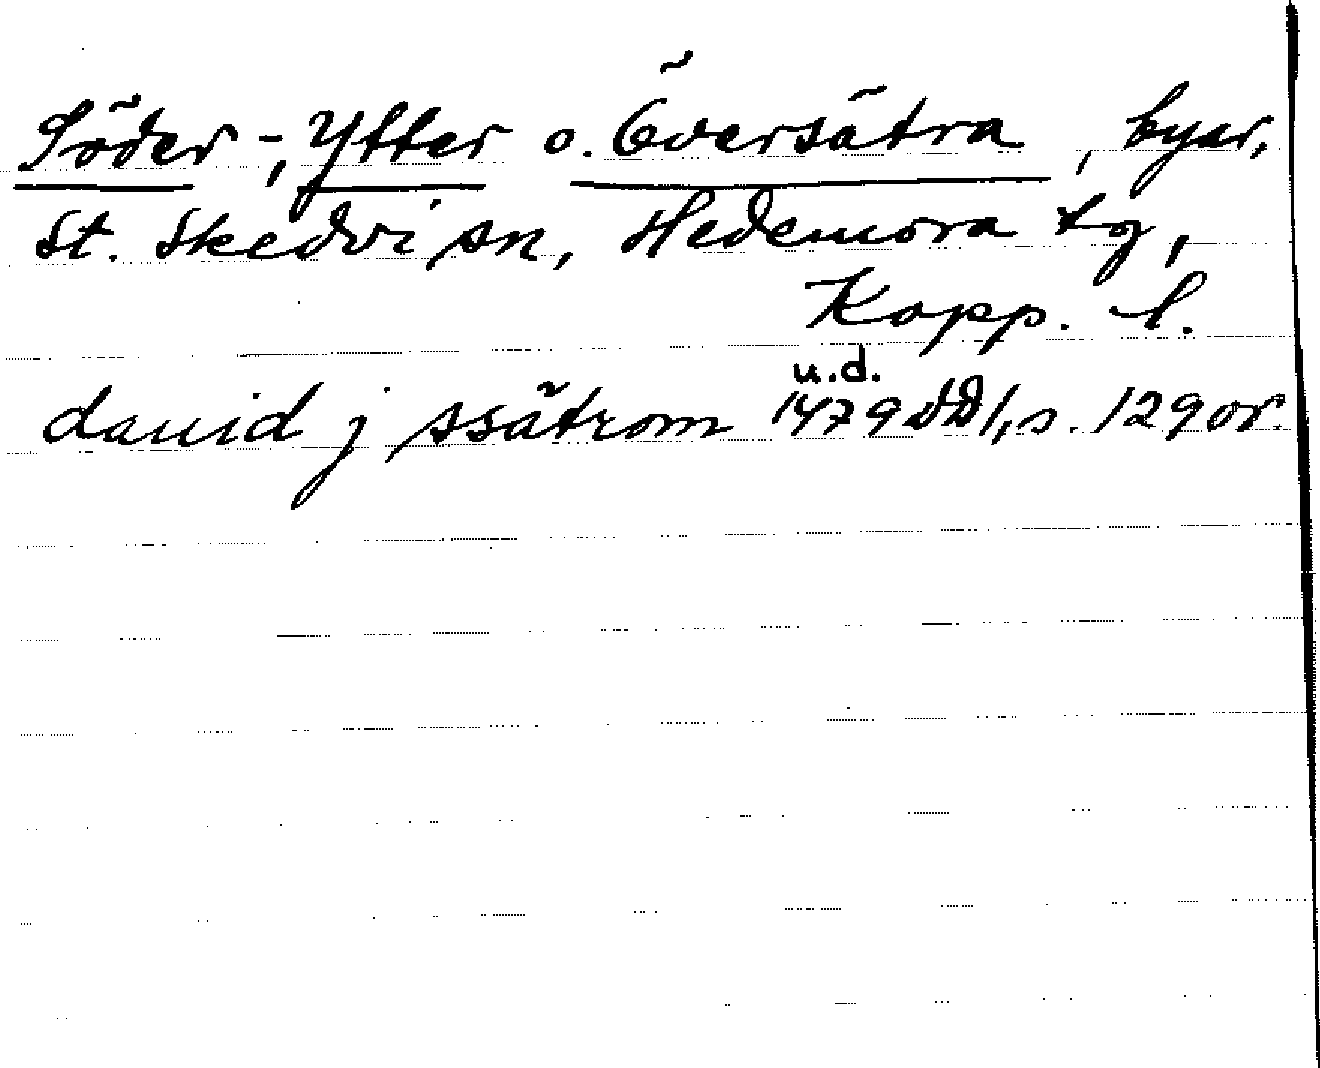 Söder-, Ytter o. Översätra, byar,
St. Skedvi sn, Hedemora tg,
Kopp. l.
u.d.
dauid j ssätrom 1479 DD 1, s. 129 or.